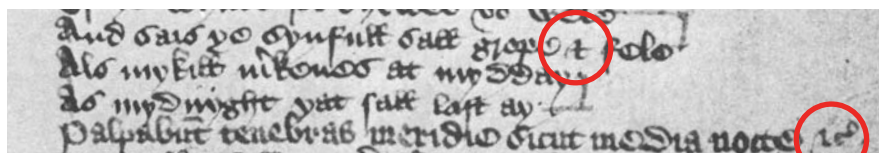 And sais ye synfull sall grope & fele
Als mykill m'kenes at mydday
As mydnyght yat sall last ay
Palpabūt tenebras meridie sicut media nocte &c